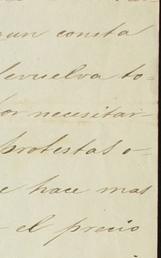 gun consta
devuelva to-
por necesitar-
protestas o-
e hace mas
el precio